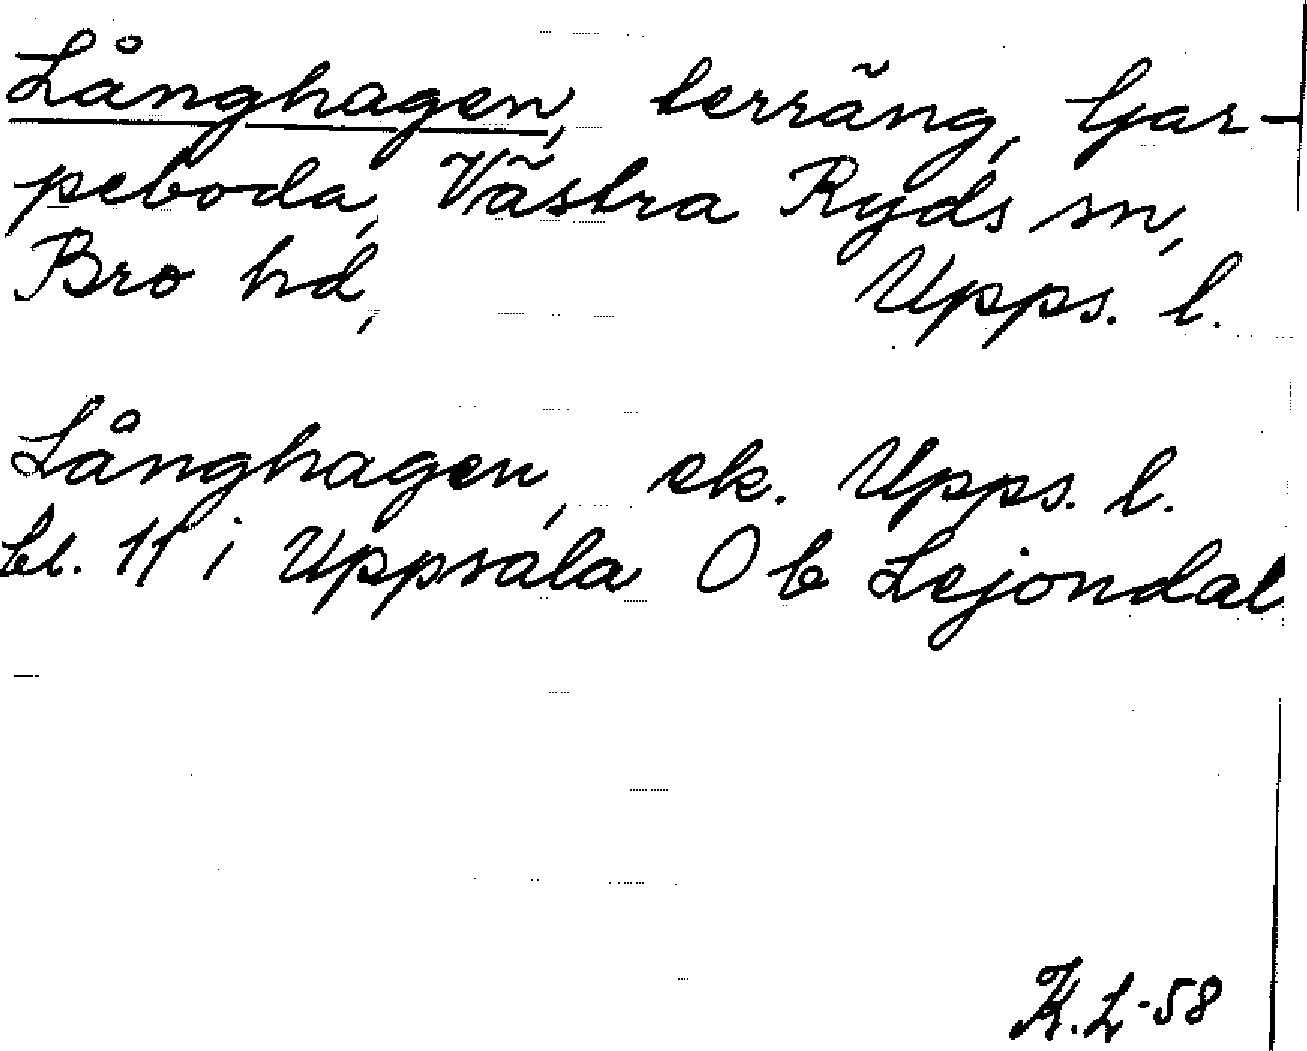 Långhagen, terräng, Gar-
peboda, Västra Ryds sn,
Bro hd, Upps. l.
Långhagen, ek. Upps. l.
bl. 11 i Uppsala Ob Lejondal
K.L-58